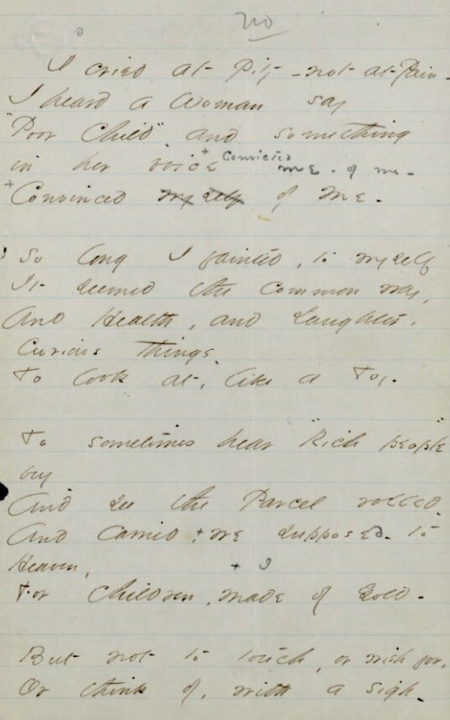 I cried at Pity - not at Pain -
I heard a Woman say
"Poor Child" and something
in her voice + Convicted me - of me -
+ Convinced myself of Me -
So long I fainted, to myself
It seemed the Common way,
And Health, and Laughter,
Curious things
To look at, like a Toy.
To sometimes hear "Rich people"
buy
And see the Parcel rolled
And Carried, + we supposed - to
Heaven,
+ I
For Children, made of Gold -
But not to touch, or wish for,
Or think of, with a sigh -